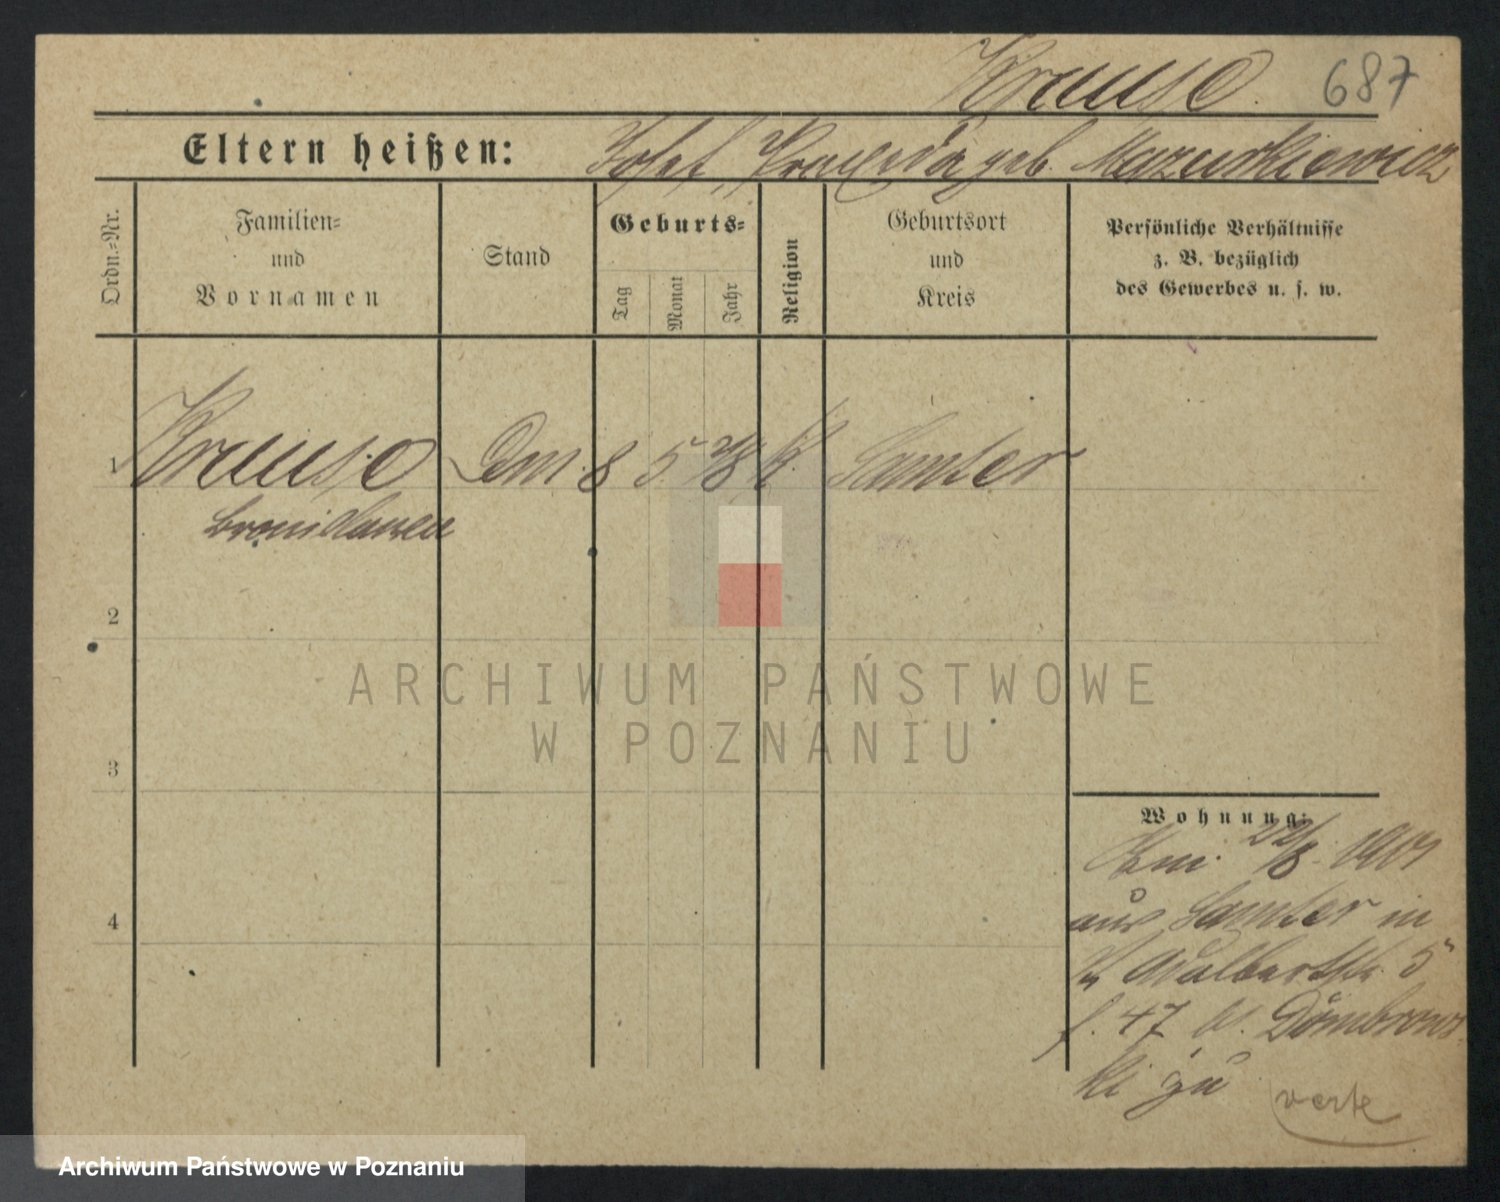 Krause. 687
Eltern heißen: Josef, geb. Mazurkiewicz
Ordn.=Nr.
Familien=
und
Vornamen
Stand
Geburts=
Tag
Monat
Jahr
Religion
Geburtsort
und
Kreis
Persönliche Verhältnisse
z. B. bezüglich
des Gewerbes u. s. w.
1 Krause 8 5 K. Samter
Bronislawa
2
3
4
ARCHIWUM PAŃSTWOWE
W POZNANIU
Wohnung:
22/8.
aus Samter in
5
f. 47 Dombrows
ki zu
verte
Archiwum Państwowe w Poznaniu